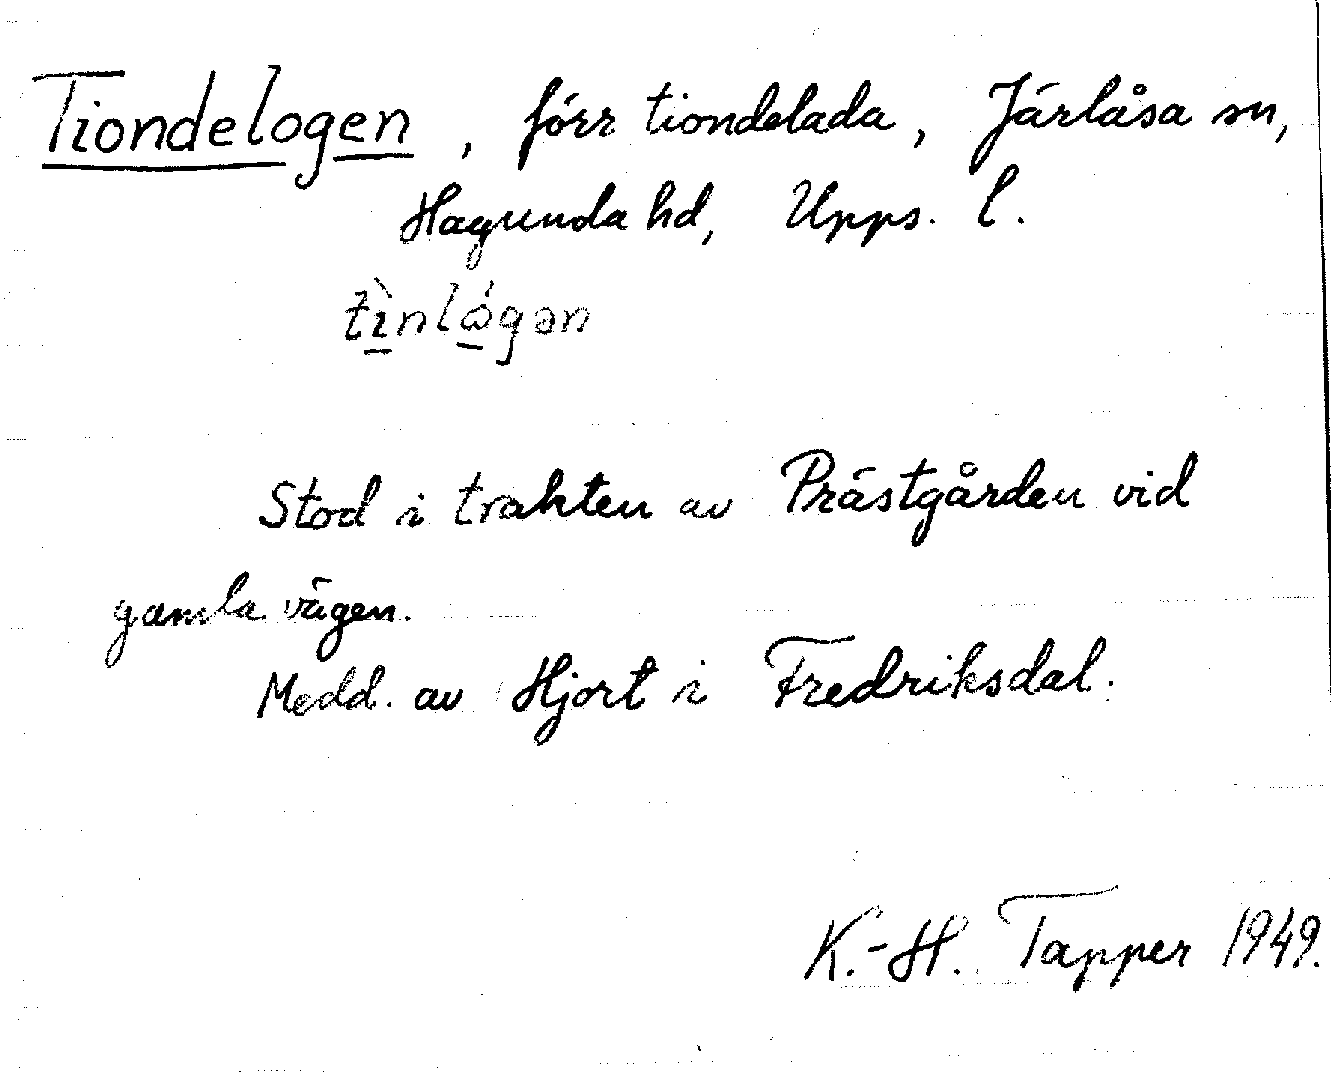 Tiondelogen, förr tiondelada, Järlåsa sn,
Hagunda hd, Upps. l.
tı̠̀nlώ̠gən
Stod i trakten av Prästgården vid
gamla vägen.
Medd. av Hjort i Fredriksdal.
K.-H. Tapper 1949.